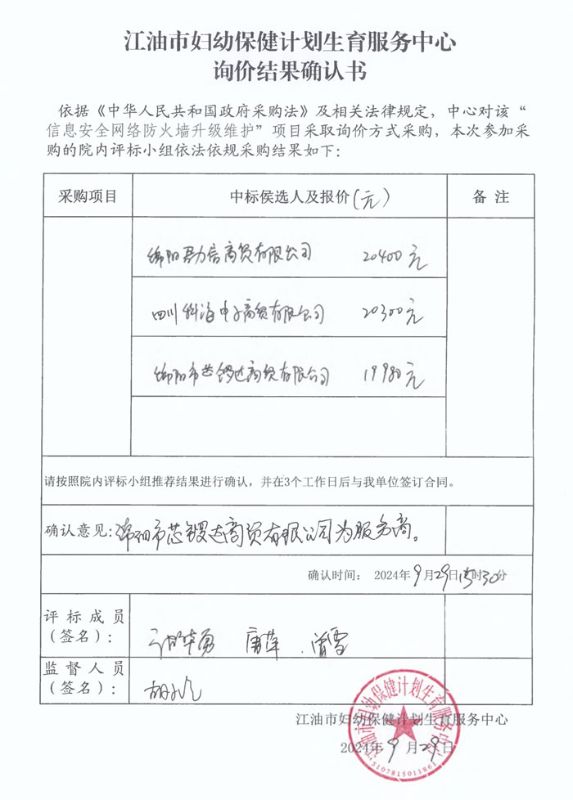 江油市妇幼保健计划生育服务中心
询价结果确认书
依据《中华人民共和国政府采购法》及相关法律规定，中心对该“
信息安全网络防火墙升级维护”项目采取询价方式采购，本次参加采
购的院内评标小组依法依规采购结果如下：
采购项目 中标侯选人及报价(元) 备 注
绵阳 商贸有限公司 20400元
四川科海电子商贸有限公司 20300元
绵阳市芯锣达商贸有限公司 19980元
请按照院内评标小组推荐结果进行确认，并在3个工作日后与我单位签订合同。
确认意见：绵阳市芯锣达商贸有限公司为服务商。
确认时间： 2024年9月29日15时30分
评标成员
（签名）： 唐萍 曾雪
监督人员
（签名）：
江油市妇幼保健计划生育服务中心
2024年9月29日
江油市妇幼保健计划生育服务中心
5107815011961